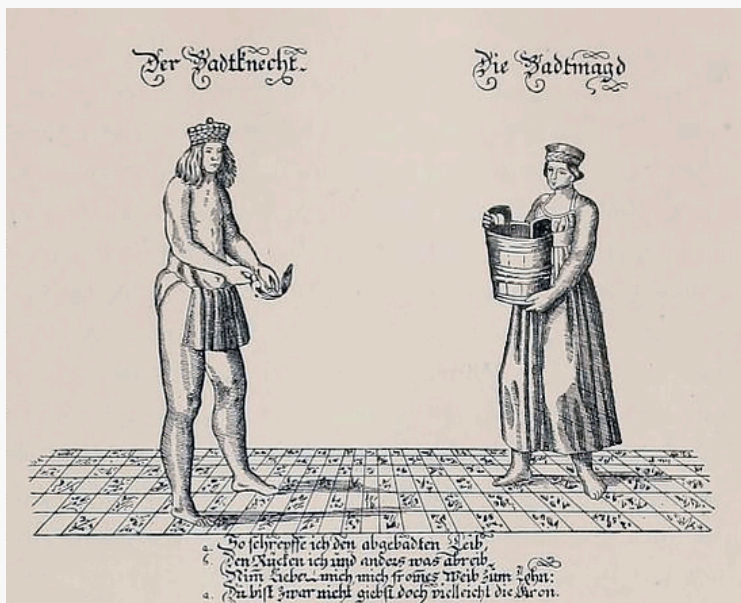 Der Badtknecht.
Die Badtmagd
a. So schrepffe ich den abgebadten Leib,
b. Den Rucken ich und anders was abreib.
Nim Lieber mich mich fromes Weib zum Lohn:
a. Du bist zwar nicht giebst doch vielleicht die Kron.